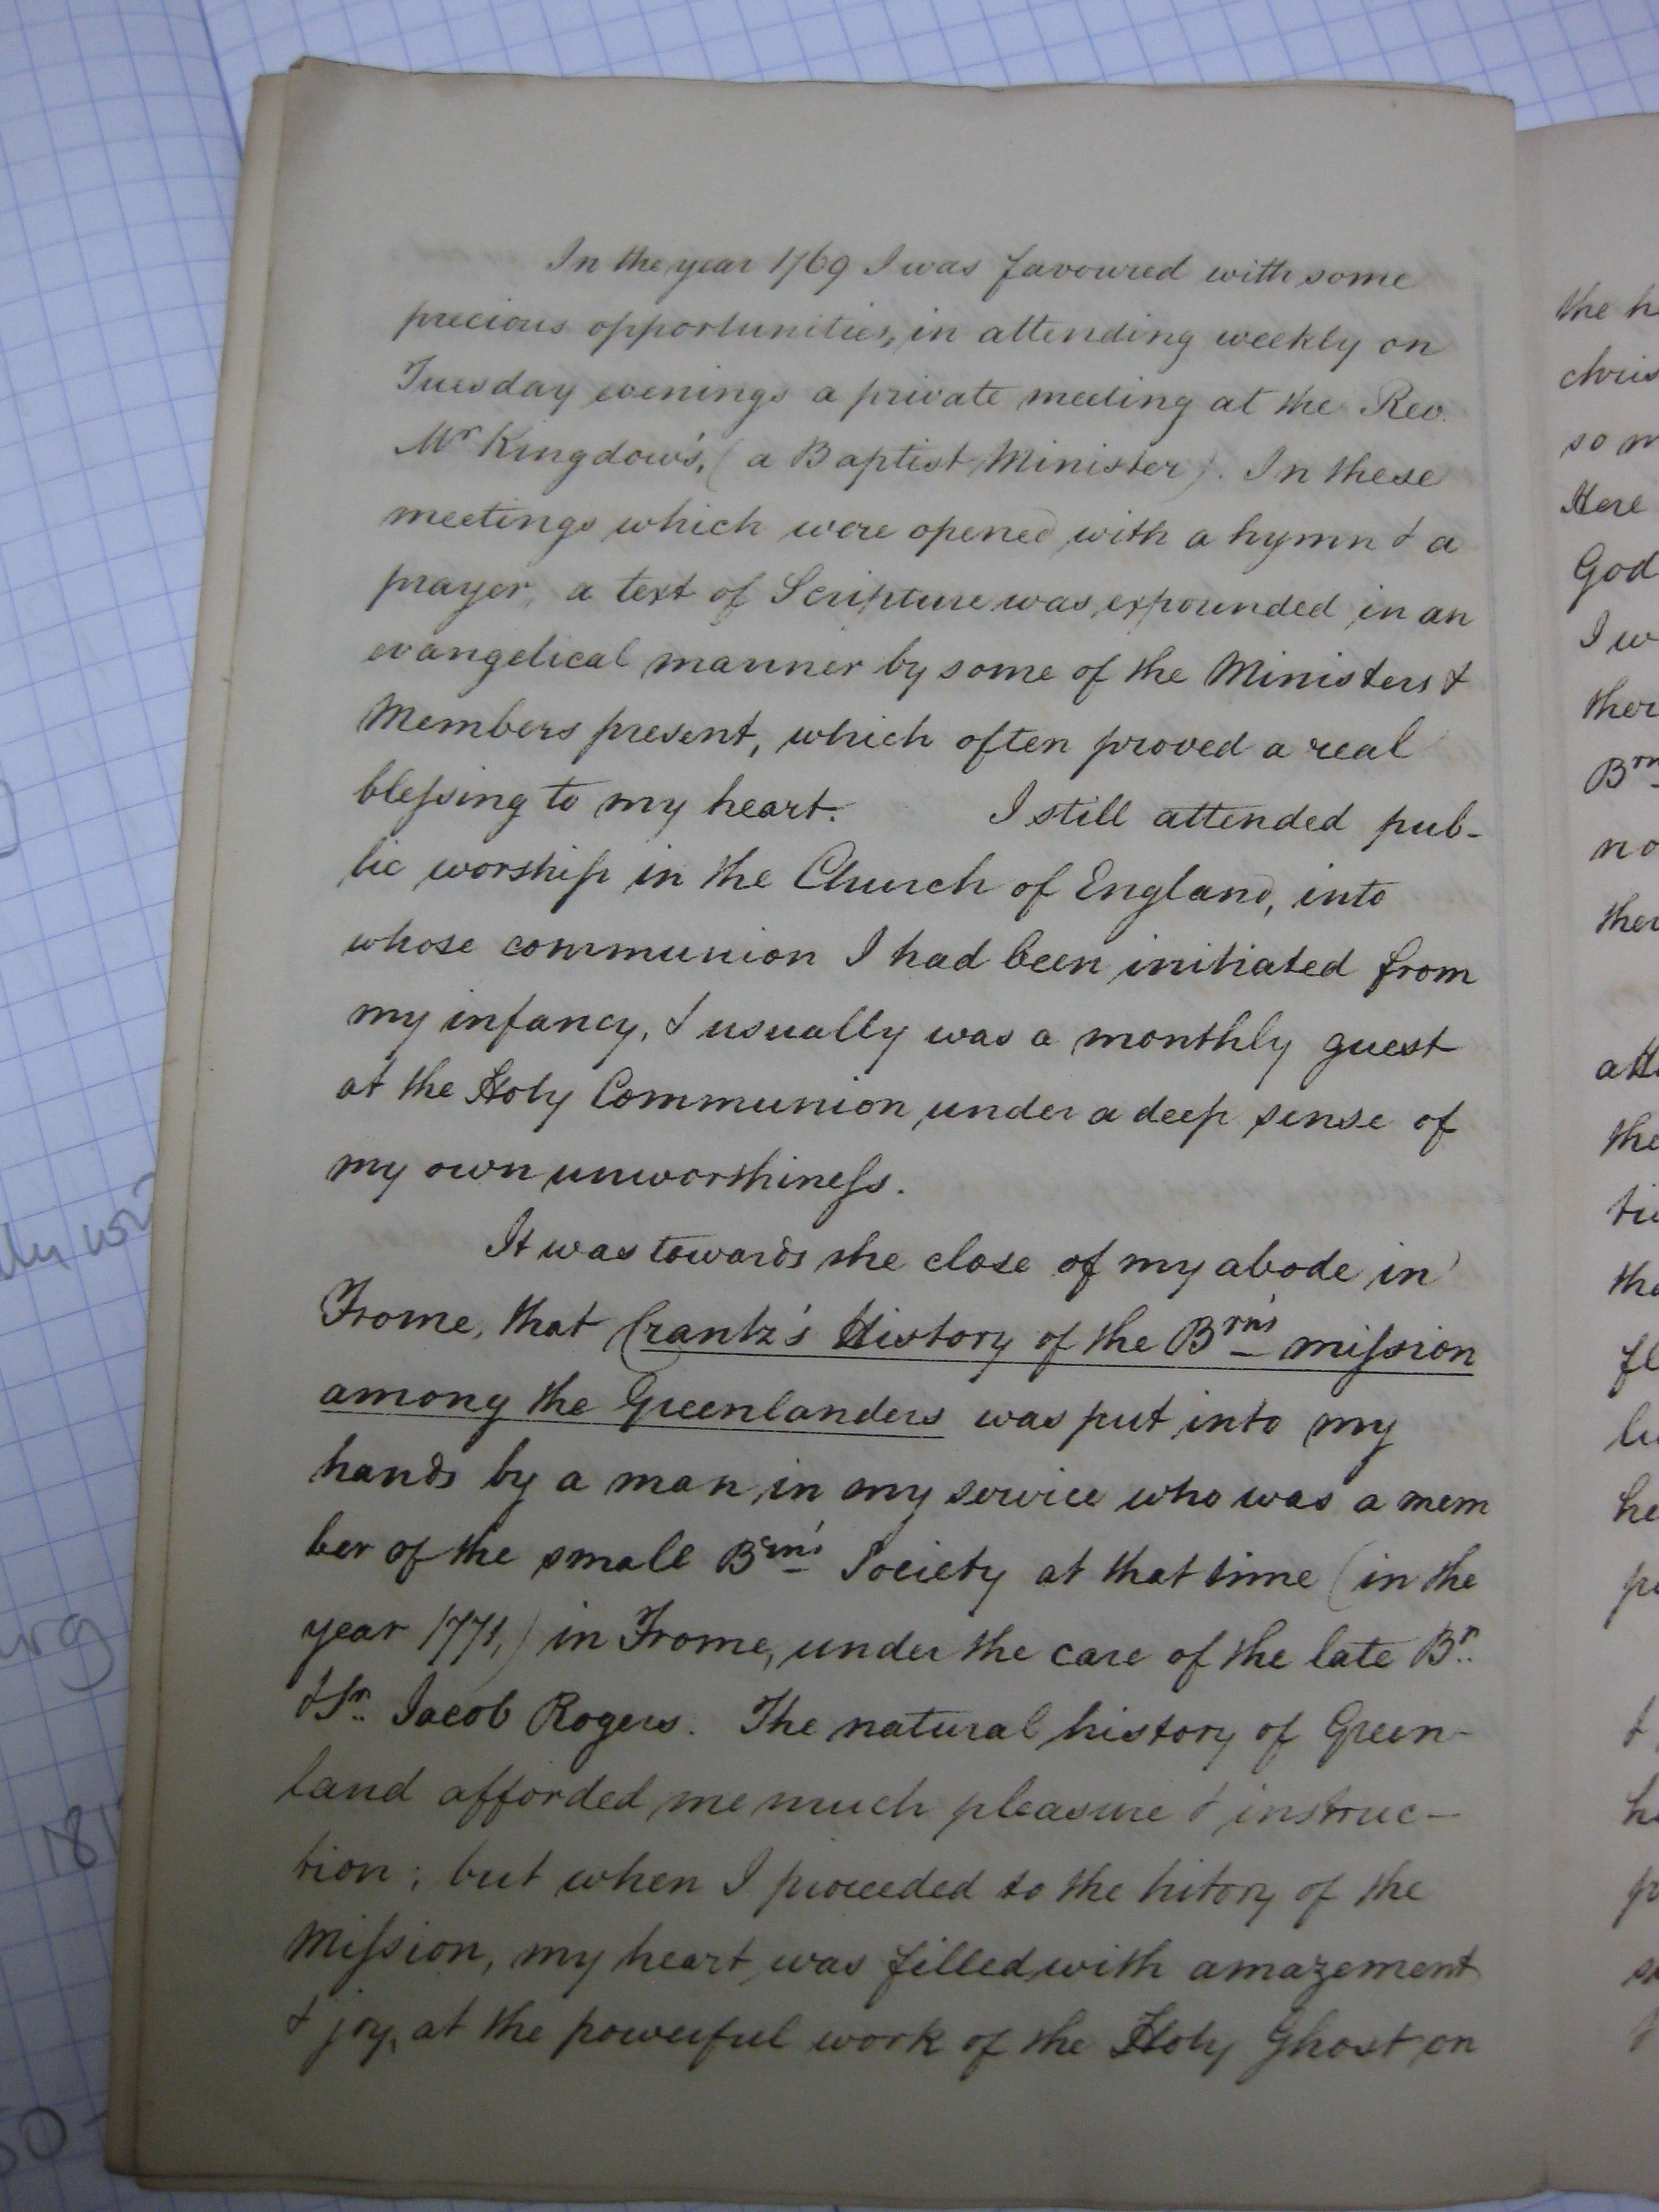 In the year 1769 I was favoured with some
precious opportunities, in attending weekly on
Tuesday evenings a private meeting at the Rev.
Mr Kingdow's, (a Baptist Minister). In these
meetings which were opened with a hymn & a
prayer, a text of Scripture was expounded in an
evangelical manner by some of the Ministers &
Members present, which often proved a real
blessing to my heart. I still attended pub-
lic worship in the Church of England, into
whose communion I had been initiated from
my infancy, & usually was a monthly guest
at the Holy Communion under a deep sense of
my own unworthiness.
It was towards the close of my abode in
Frome, that Crantz's History of the Brn's mission
among the Greenlanders was put into my
hands by a man in my service who was a mem
ber of the small Brn's Society at that time (in the
year 1771,) in Frome, under the care of the late Br.
& Sr. Jacob Rogers. The natural history of Green-
land afforded me much pleasure & instruc-
tion; but when I proceeded to the hitory of the
Mission, my heart was filled with amazement
& joy, at the powerful work of the Holy Ghost on
the h
chris
so m
Here
God
I w
ther
Brn
no
ther
atte
the
tio
the
fl
he